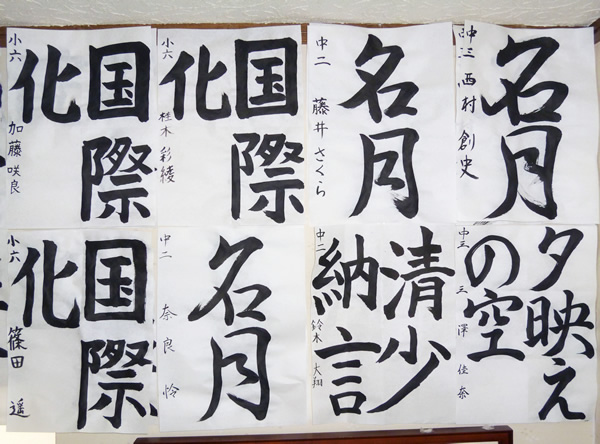 名月
中三 西村 創史
名月
中二 藤井 さくら
国際
化
小六 桂木 彩綾
国際
化
小六 加藤 咲良
夕映え
の空
中三 三澤 佳奈
清少
納言
中二 鈴木 大翔
名月
中二 奈良 怜
国際
化
小六 篠田 遥